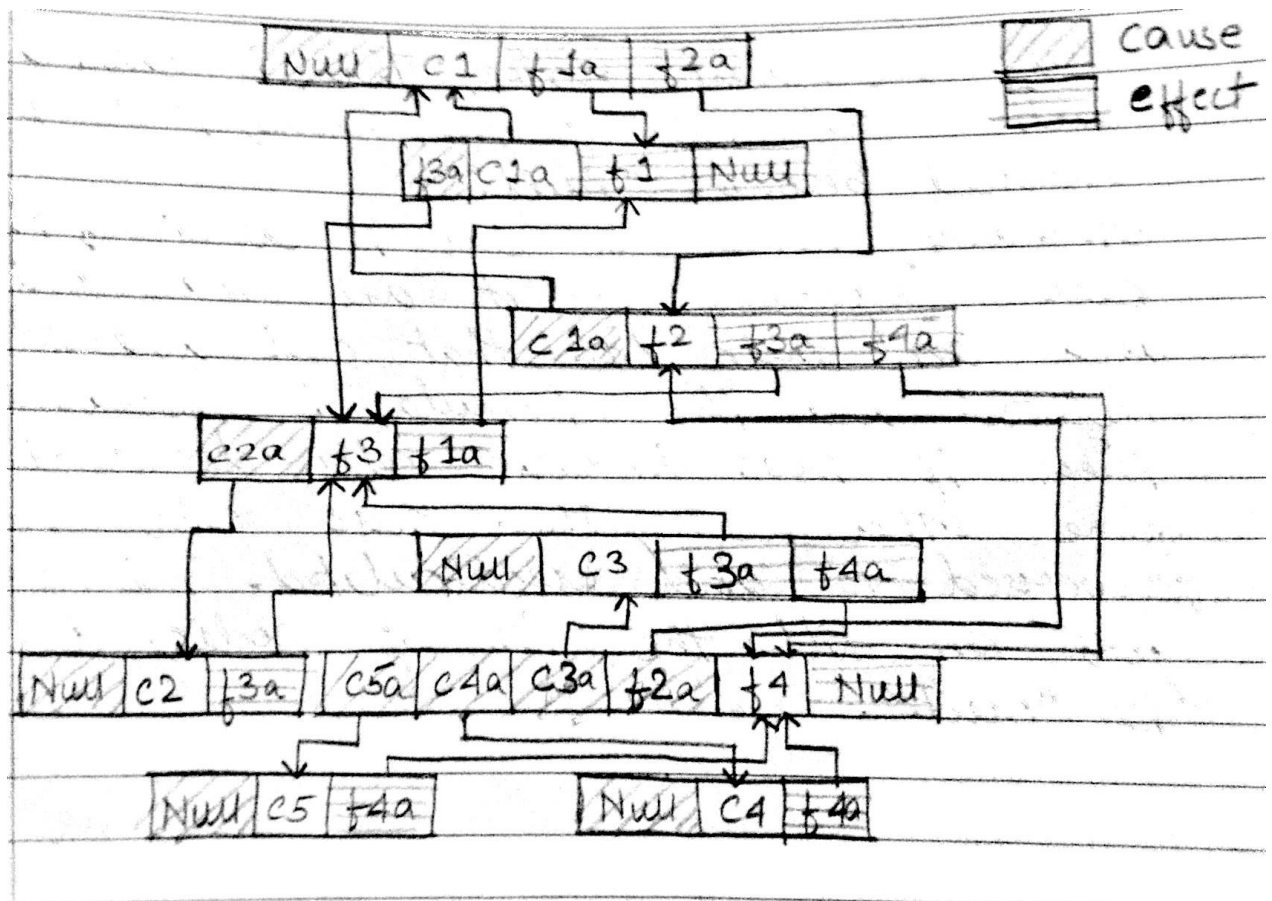 Null C1 f1a f2a
cause
effect
f3a C1a f1 Null
C1a f2 f3a f4a
C2a f3 f1a
Null C3 f3a f4a
Null C2 f3a
C5a C4a C3a f2a f4 Null
Null C5 f4a
Null C4 f4a